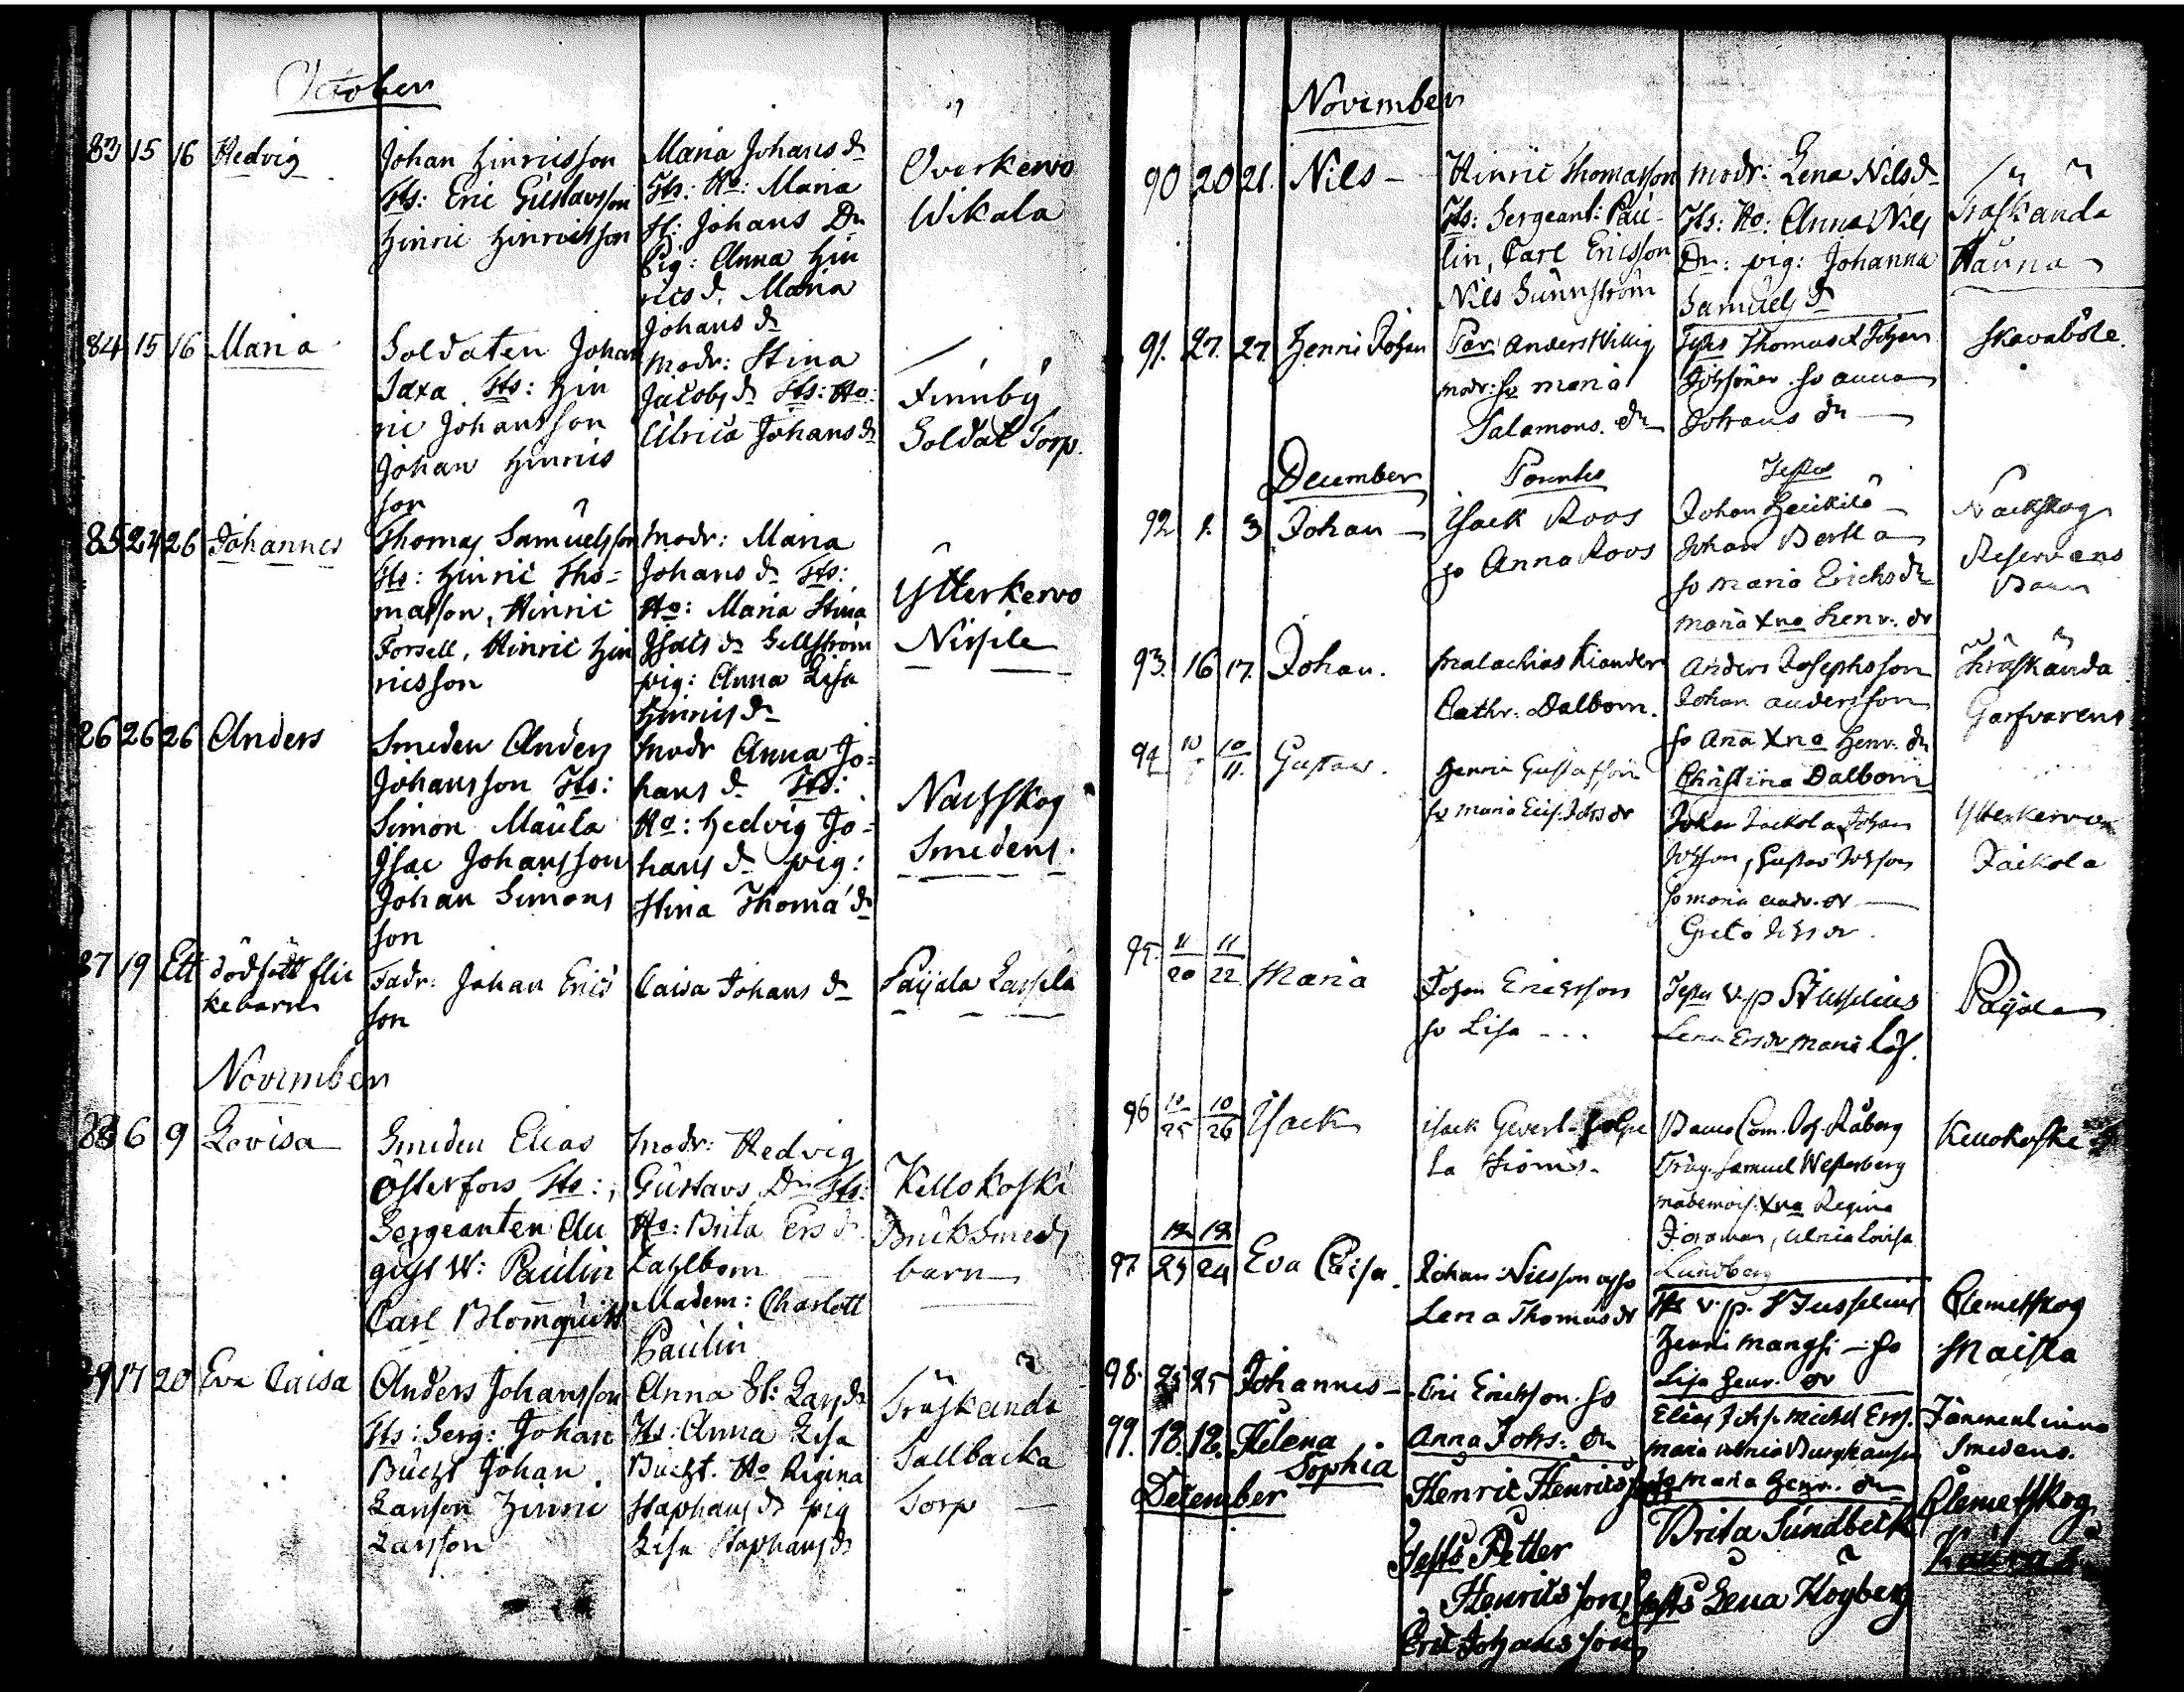 October
83 15 16 Hedvig
Johan Hinricsson
Tts: Eric Gustavsson
Hinric Hinricsson
Maria Johans dr
Tts: Ho: Maria
H: Johans Dr
Pig: Anna Hin
rics d. Maria
Johans dr
Overkervo
Wikala
84 15 16 Maria
Soldaten Johan
Taxa Tts: Hin
ric Johansson
Johan Hinrics
son
Modr: Stina
Jacobs dr Tts: Ho:
Ulrica Johans dr
Finnby
Soldat Torp.
85 24 26 Johannes
Thomas Samuelsson
Tts: Hinric Tho=
masson, Hinric
Forsell, Hinric Hin
ricsson
Modr: Maria
Johans dr Tts:
Ho: Maria Stina
Isacs dr Sellström
pig: Anna Lisa
Hinrics dr
Ytterkervo
Nissile
86 26 26 Anders
Smeden Anders
Johansson Tts:
Simon Maula
Isac Johansson
Johan Simons
son
Modr Anna Jo=
hans d. Tts:
Ho: Hedvig Jo=
hans d. pig:
Stina Thoma dr
Nackskog
Smedens.
87 19 Ett dödfött flic
kebarn
Fadr: Johan Erics
son
Caisa Johans dr
Paijala Lassila
November
88 6 9 Lovisa
Smeden Elias
Österfors Tts:
Sergeanten Au
gust W: Paulin
Carl Blomquist
Modr: Hedvig
Gustavs Dr Tts:
Ho: Brita Ers d.
Lahlbom
Madem: Charlott
Paulin
Kellokoski
Bruksmeds
barn
89 17 20 Eva Caisa
Anders Johansson
Tts: Serg: Johan
Bucht Johan
Larsson Hinric
Larsson
Anna St: Lars dr
Tts: Anna Lisa
Bucht. Ho Regina
Staphans dr pig
Lisa Staphans dr
Träskända
Tallbacka
Torp
November
90 20 21. Nils
Hinric Thomasson
Tts: Sergeant: Pau=
lin, Carl Ericsson
Nils Sunnström
Modr: Lena Nils dr
Tts: Ho: Anna Nils
Dr: pig: Johanna
Samuels dr
Träskända
Hauna
91. 27. 27. Henric Johan
Par Anders Willig
modr: ho maria
Salamons. dr
Testes Thomas & Johan
Johssöner. ho anna
Johans dr
Skavaböle.
December
Parentes
Testes
92 1. 3 Johan
Isack Roos
ho Anna Roos
Johan Heikilä
Johan Bertla
ho Maria Erichs dr
maria Xna Henr. dr
Nackskog
Reservens
Barn
93. 16 17. Johan.
Malachias Kiander
Cathr. Dalbom.
Anders Josephsson
Johan andersson
ho Ana Xna Henr. dr
Christina Dalbom
Träskända
Garfvarens
94 10 10
11. Gustav.
Henric Gustafsson
ho Maria Eric. Johs dr
Johan Jackola Johan
Johsson, Gustav Johsson
ho maria andr. dr
Greta Johs dr.
Ytterkervo
Jackola
95. 11 11
20 22 Maria
Johan Ericsson
ho Lisa - - -
Testes v. p
Lena Ers dr Maria
Paijala
96 10 10
25 26 Isack
Isack
Samuel Westerberg
mademois. Xna Regina
Forsman, Ulrica Lovisa
Lundberg
Kellokoski
12 12
97. 23 24 Eva Caisa.
Johan Nilsson ho
Lena Thomas dr
Tts v. p.
Henric Mangsi - ho
Lisa Henr. dr
Clemetskog
Maista
98. 25 25 Johannes
Eric Ericksson ho
Anna Johs: dr
Elias Johs. Michel Ers.
Maria Ulrica Burghausen
ho Maria Henr. dr
Smedens.
99. 18. 18. Helena
Sophia
December
Henric Henricsson
Tests Petter
Henricsson,
Eric Johansson
Brita Sundbeck
Tests Lena Högberg
Clemetskog